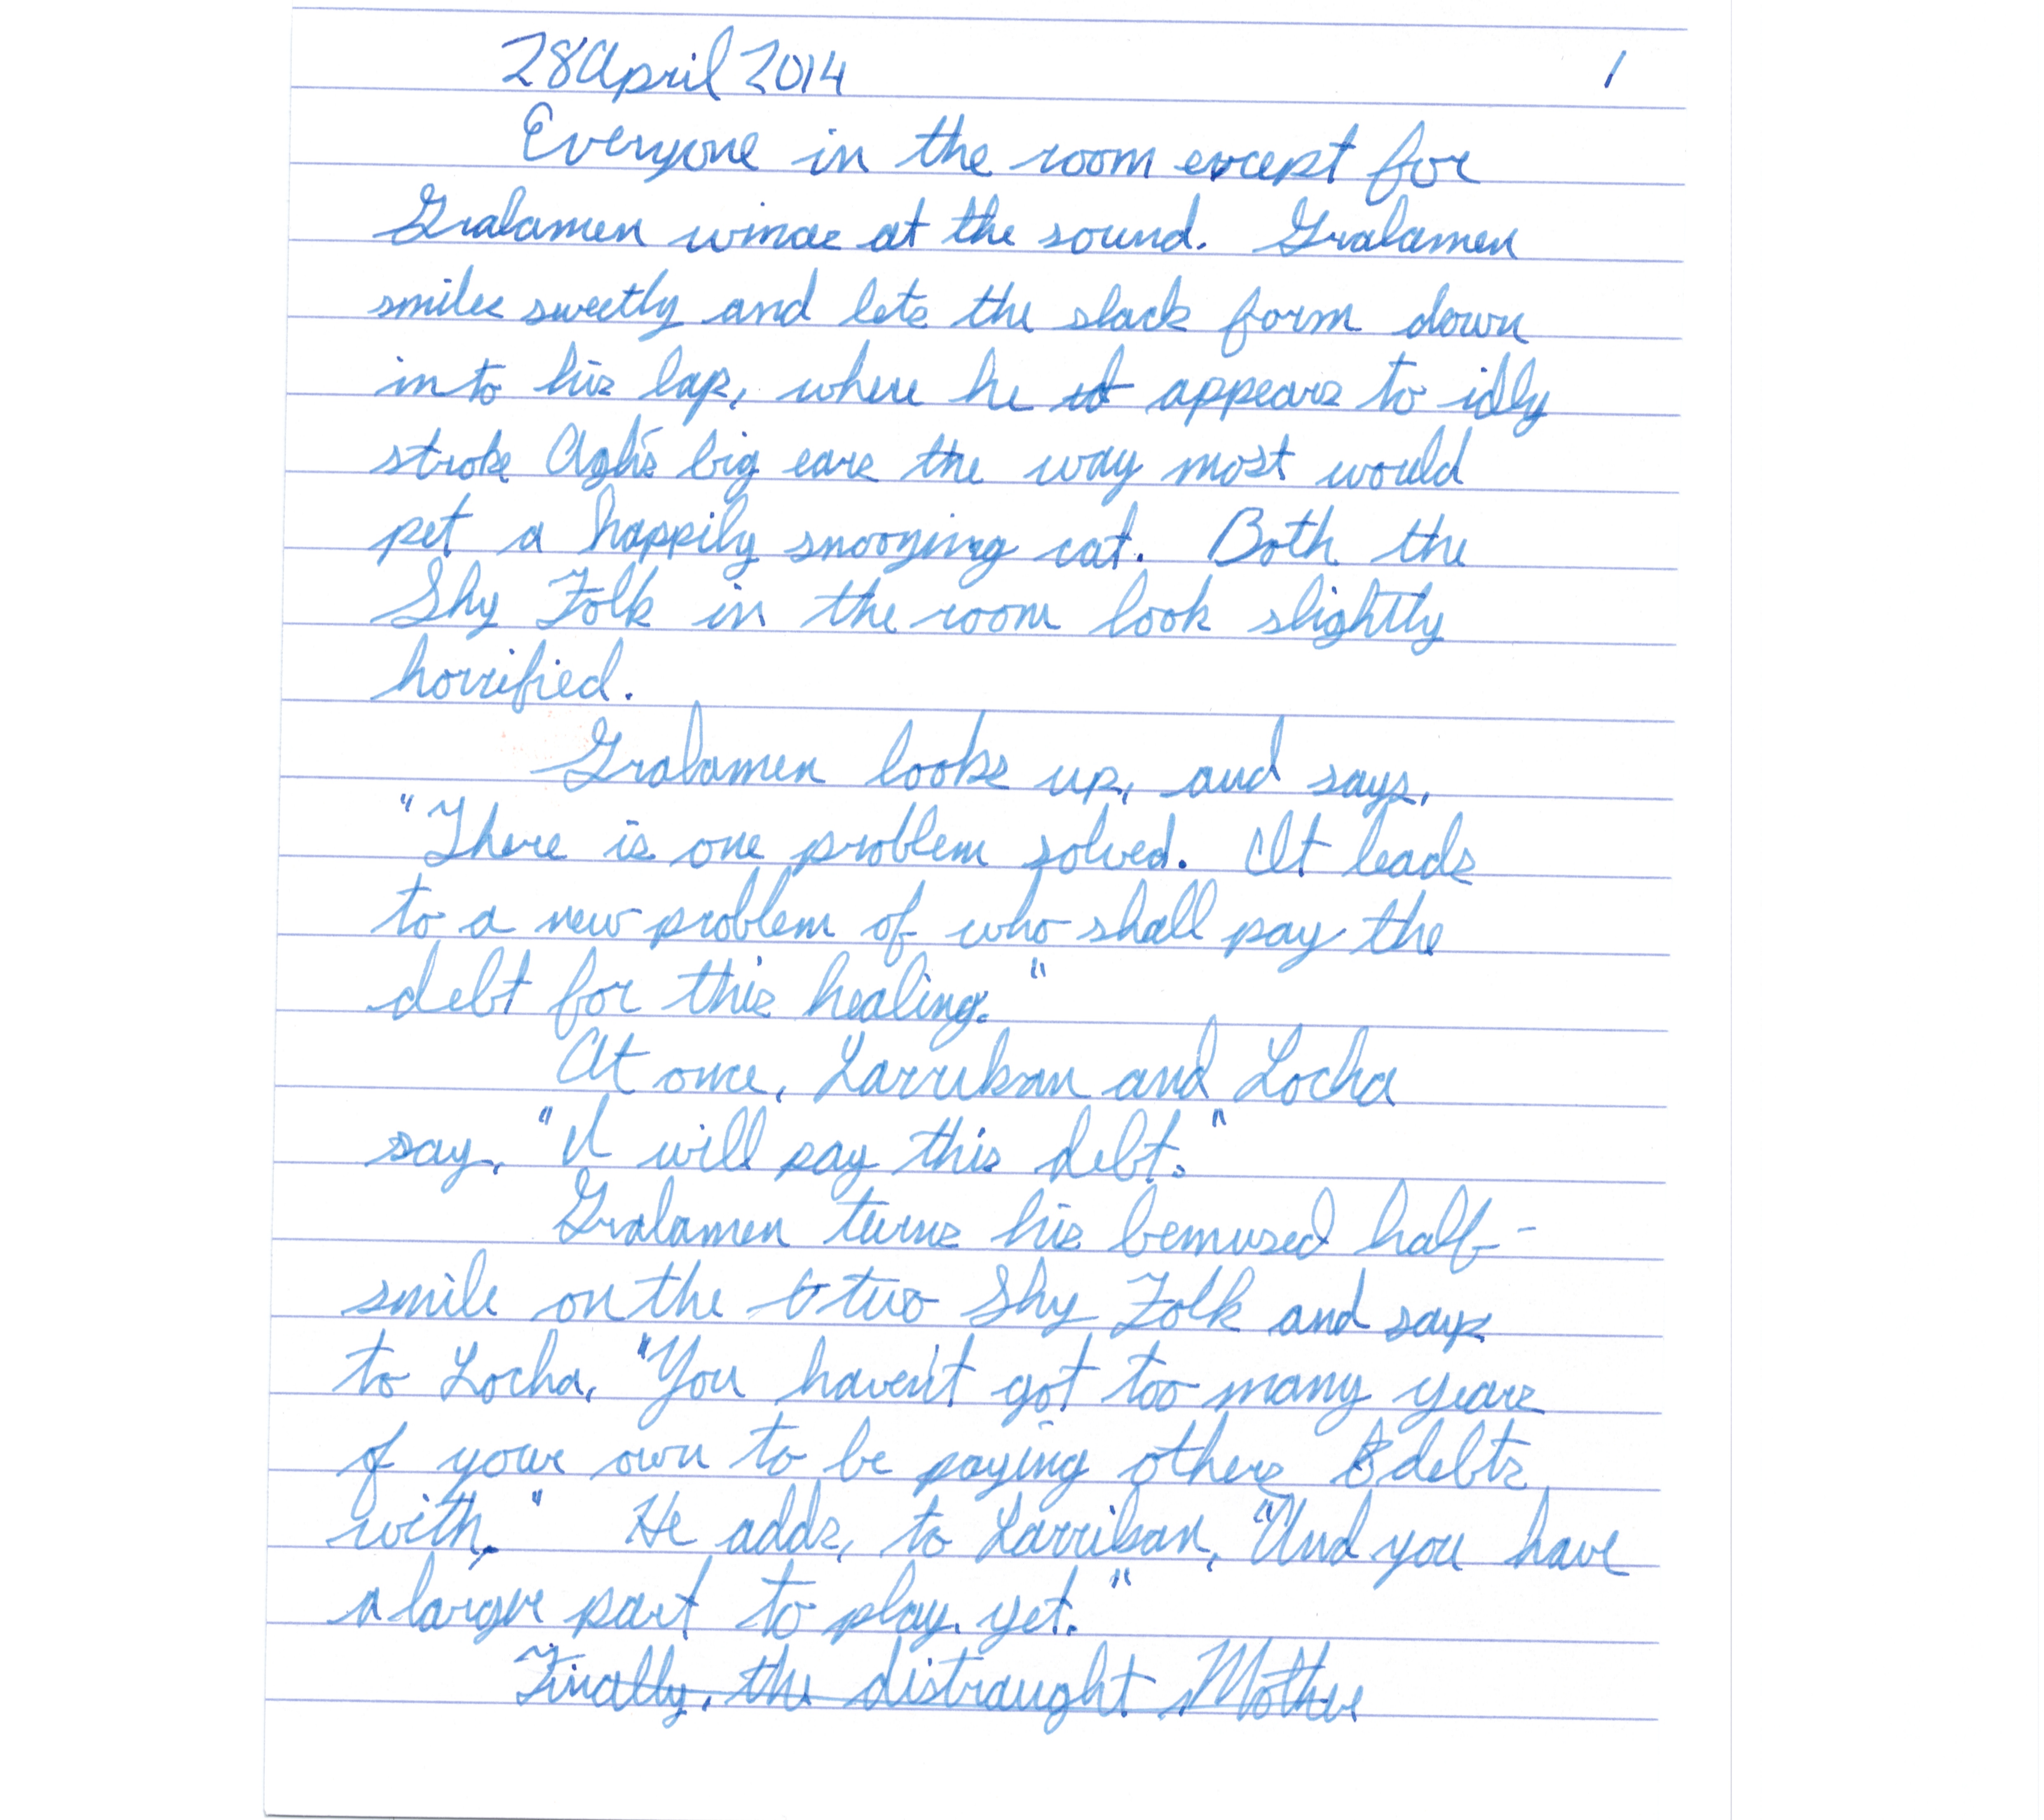 28 April 2014 1
Everyone in the room except for
Gralamen wince at the sound. Gralamen
smiles sweetly and lets the slack form down
into his lap, where he appears to idly
stroke Agh's big ears the way most would
pet a happily snoozing cat. Both the
Shy Folk in the room look slightly
horrified.
Gralamen looks up, and says,
"There is one problem solved. It leads
to a new problem of who shall pay the
debt for this healing."
At once, Larrikan and Locha
say, "I will pay this debt."
Gralamen turns his bemused half-
smile on the two Shy Folk and says
to Locha, "You haven't got too many years
of your own to be paying others debts
with." He adds, to Larrikan, "And you have
a larger part to play, yet."
Finally, the distraught Mother